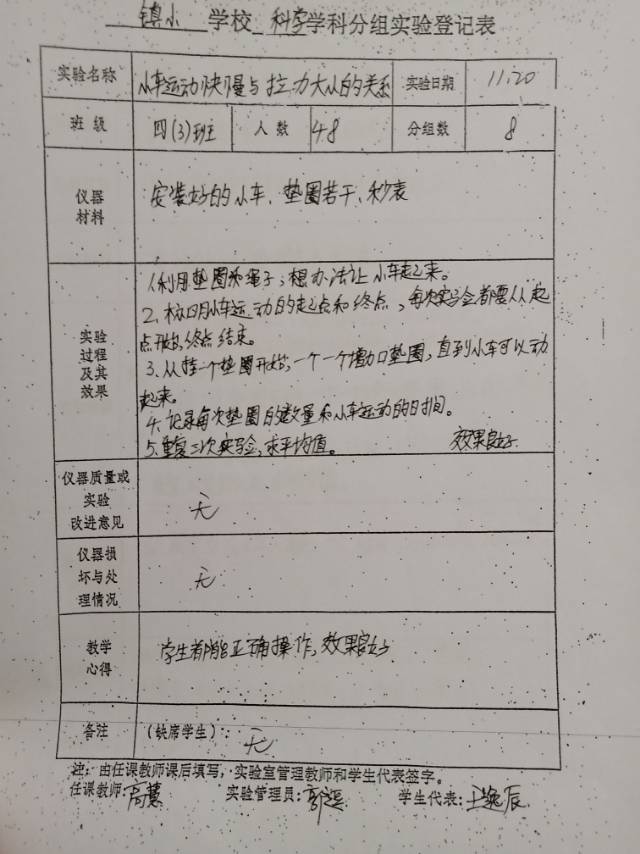 镇小 学校 科学 学科分组实验登记表
实验名称 小车运动快慢与拉力大小的关系 实验日期 11.20
班级 四(3)班 人数 48 分组数 8
仪器材料 安装好的小车、垫圈若干、秒表
实验过程及其效果
1.利用垫圈和绳子,想办法让小车走起来。
2.标明小车运动的起点和终点,每次实验都要从起
点开始,终点结束。
3.从挂一个垫圈开始,一个一个增加垫圈,直到小车可以动
起来。
4.记录每次垫圈的数量和小车运动的时间。
5.重复三次实验,求平均值。 效果良好
仪器质量或实验改进意见 无
仪器损坏与处理情况 无
教学心得 学生都能正确操作,效果良好
备注 (缺席学生): 无
注:由任课教师课后填写,实验室管理教师和学生代表签字。
任课教师:高慧 实验管理员: 学生代表:王逸辰